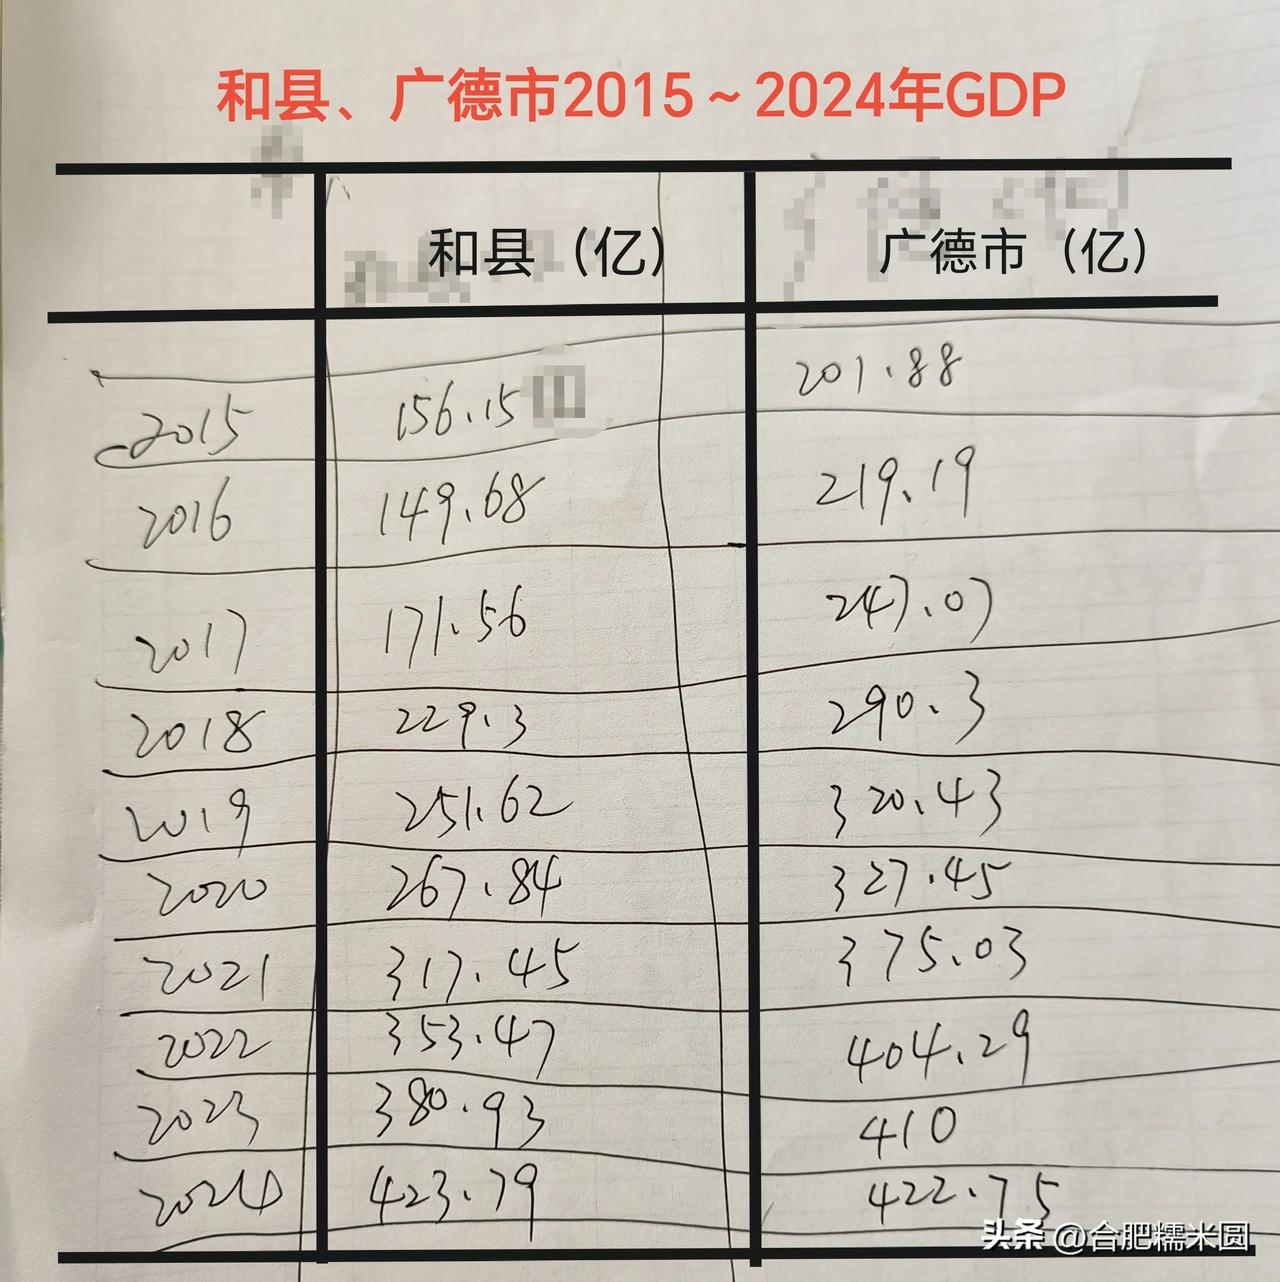 和县、广德市2015～2024年GDP
和县（亿） 广德市（亿）
2015 156.15 201.88
2016 149.68 219.19
2017 171.56 247.07
2018 229.3 290.3
2019 251.62 320.43
2020 267.84 327.45
2021 317.45 375.03
2022 353.47 404.29
2023 380.93 410
2024 423.79 422.75
头条 @合肥糯米圆